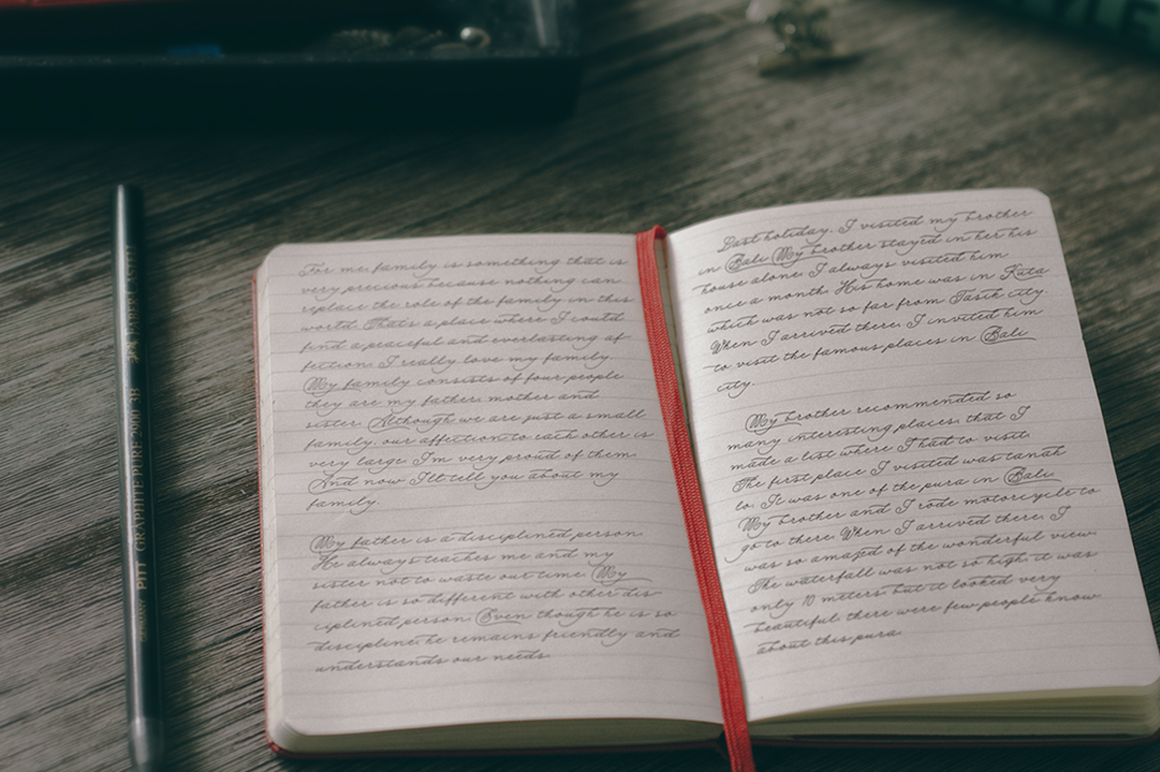 For me, family is something that is
very precious because nothing can
replace the role of the family in this
world. Thats a place where I could
find a peaceful and everlasting af
fection. I really love my family.
My family consists of four people
they are my father, mother and
sister. Although we are just a small
family, our affection to each other is
very large. I'm very proud of them.
And now I'll tell you about my
family.
My father is a disciplined person.
He always teaches me and my
sister not to waste our time. My
father is so different with other dis
ciplined person. Even though he is so
discipline, he remains friendly and
understands our needs.
Last holiday. I visited my brother
in Bali My brother stayed in her his
house alone. I always visited him
once a month. His home was in Kuta
which was not so far from Tasik city.
When I arrived there, I invited him
to visit the famous places in Bali
city.
My brother recommended so
many interesting places that I
made a list where I had to visit.
The first place I visited was tanah
lo. It was one of the pura in Bali.
My brother and I rode motorcycle to
go to there. When I arrived there, I
was so amazed of the wonderful view.
The waterfall was not so high, it was
only 10 meters but it looked very
beautiful. there were few people know
about this pura.
PITT GRAPHITE PURE 2900 3B